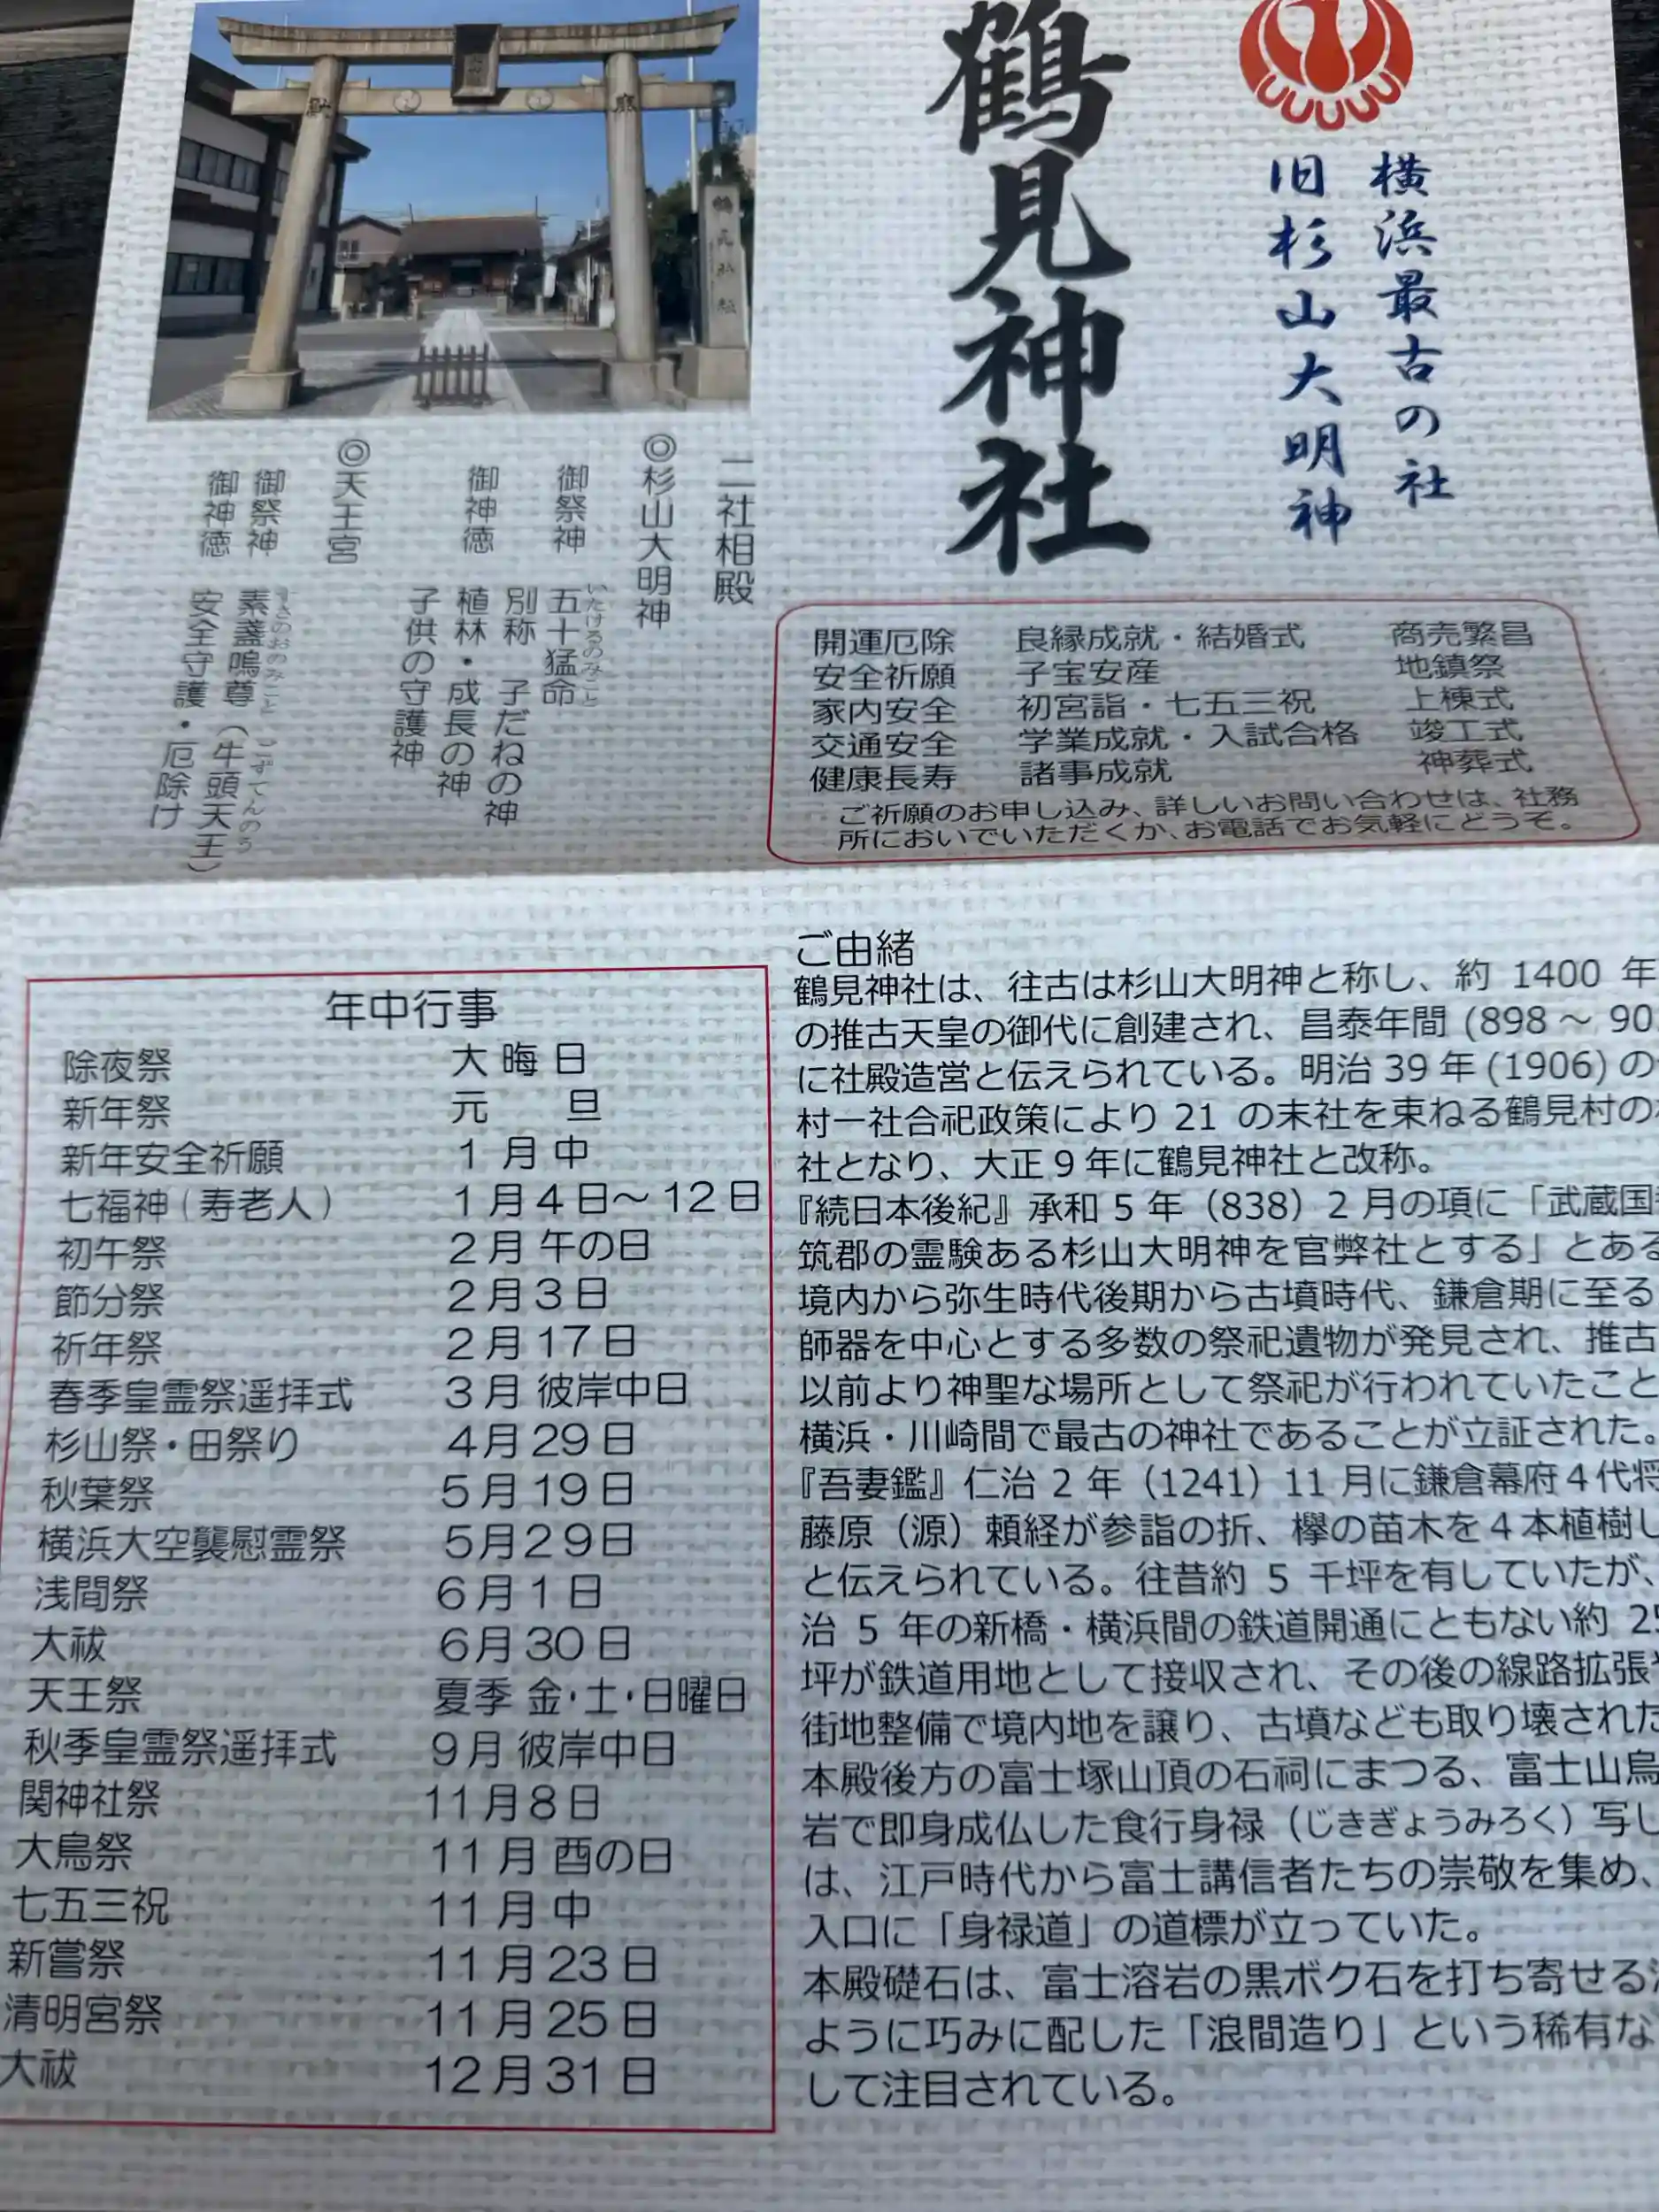 横浜最古の社
旧杉山大明神
鶴見神社
鶴見神社
二社相殿
◎杉山大明神
御祭神 五十猛命
いたけるのみこと
別称 子だねの神
御神徳 植林・成長の神
子供の守護神
◎天王宮
御祭神 素盞嗚尊(牛頭天王)
すさのおのみこと ごずてんのう
御神徳 安全守護・厄除け
開運厄除 良縁成就・結婚式 商売繁昌
安全祈願 子宝安産 地鎮祭
家内安全 初宮詣・七五三祝 上棟式
交通安全 学業成就・入試合格 竣工式
健康長寿 諸事成就 神葬式
ご祈願のお申し込み、詳しいお問い合わせは、社務
所においでいただくか、お電話でお気軽にどうぞ。
年中行事
除夜祭 大晦日
新年祭 元旦
新年安全祈願 1月中
七福神(寿老人) 1月4日～12日
初午祭 2月午の日
節分祭 2月3日
祈年祭 2月17日
春季皇霊祭遥拝式 3月彼岸中日
杉山祭・田祭り 4月29日
秋葉祭 5月19日
横浜大空襲慰霊祭 5月29日
浅間祭 6月1日
大祓 6月30日
天王祭 夏季 金・土・日曜日
秋季皇霊祭遥拝式 9月彼岸中日
関神社祭 11月8日
大鳥祭 11月酉の日
七五三祝 11月中
新嘗祭 11月23日
清明宮祭 11月25日
大祓 12月31日
ご由緒
鶴見神社は、往古は杉山大明神と称し、約 1400 年
の推古天皇の御代に創建され、昌泰年間 (898～ 90
に社殿造営と伝えられている。明治39年(1906)の
村一社合祀政策により21 の末社を束ねる鶴見村の
社となり、大正9年に鶴見神社と改称。
『続日本後紀』承和5年（838）2月の項に「武蔵国
筑郡の霊験ある杉山大明神を官弊社とする」とある
境内から弥生時代後期から古墳時代、鎌倉期に至る
師器を中心とする多数の祭祀遺物が発見され、推古
以前より神聖な場所として祭祀が行われていたこと
横浜・川崎間で最古の神社であることが立証された。
『吾妻鑑』仁治2年（1241）11月に鎌倉幕府4代将
藤原（源）頼経が参詣の折、欅の苗木を4本植樹し
と伝えられている。往昔約 5 千坪を有していたが、
治 5 年の新橋・横浜間の鉄道開通にともない約 25
坪が鉄道用地として接収され、その後の線路拡張
街地整備で境内地を譲り、古墳なども取り壊された
本殿後方の富士塚山頂の石祠にまつる、富士山烏
岩で即身成仏した食行身禄（じきぎょうみろく）写し
は、江戸時代から富士講信者たちの崇敬を集め、
入口に「身禄道」の道標が立っていた。
本殿礎石は、富士溶岩の黒ボク石を打ち寄せる
ように巧みに配した「浪間造り」という稀有な
して注目されている。